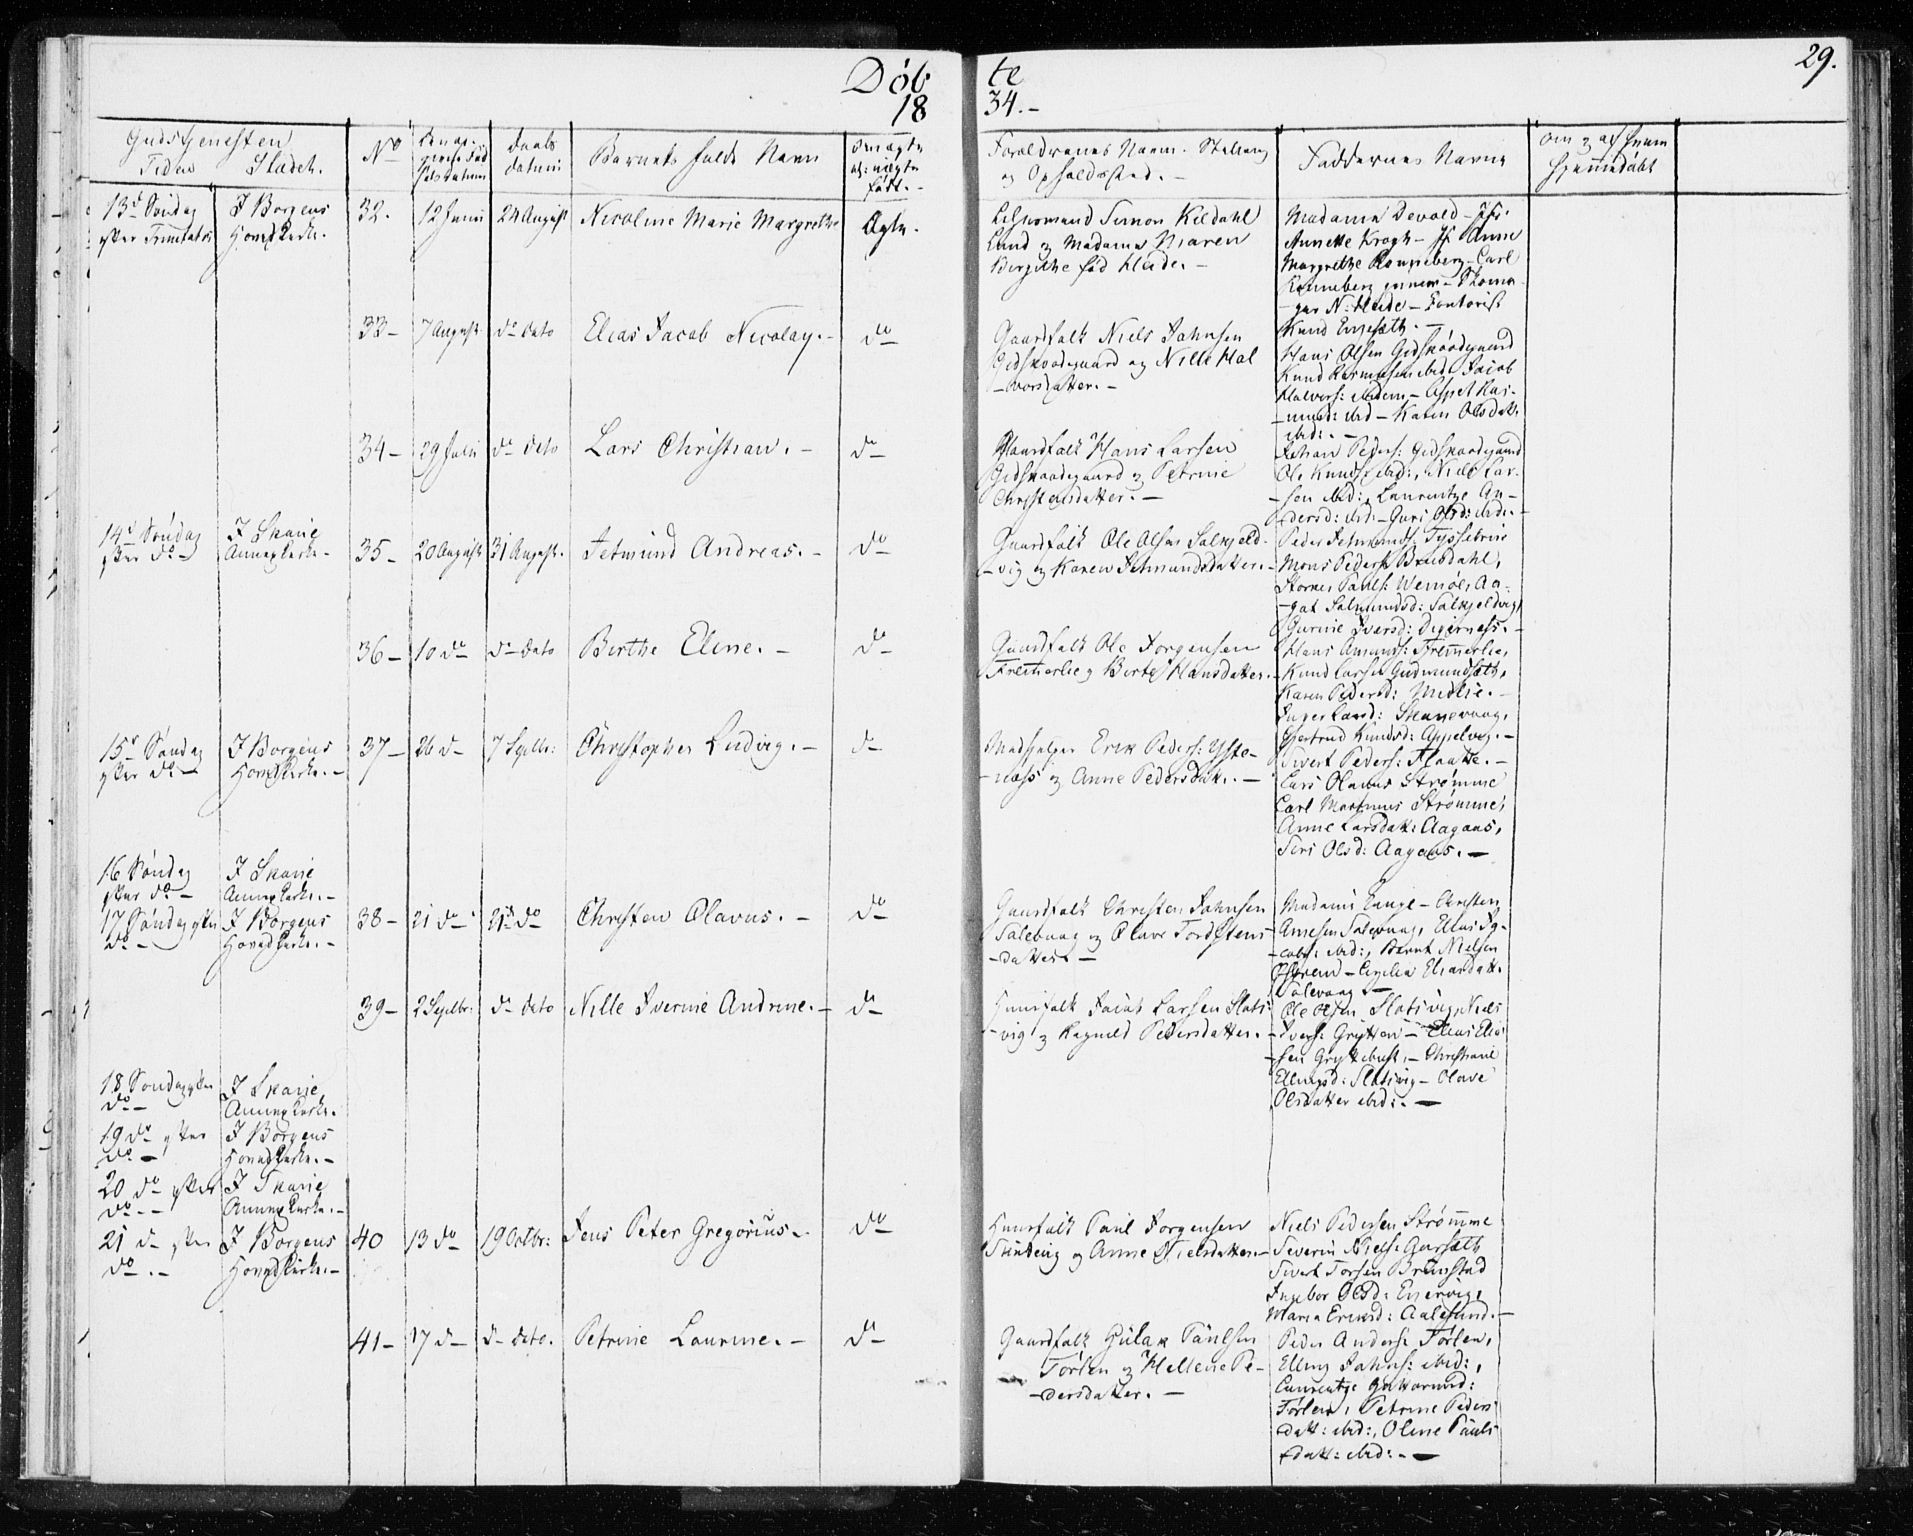 Döb
te
29.
18
34.-
Gudstjenesten
Tiden Stædet.
No
Daabs
datum
Barnets fulde Navn
født.-
Forældrenes Navn. Stilling
og Opholdssted.-
Faddernes Navne
om og af hvem
hjemmedøbt
13d Søndag
efter Trinitatis
I Borgens
Hovedkirke.
32.
12 Juni
24 August
Nicoline Marie Margrethe
Ægte.
Simon Kildahl
Lund og Madame Maren
Birgithe fød Heide.-
Madame Devold - Jfr.
Annette Krogh - Jf Anne
Margrethe Rønneberg - Carl
Rønneberg junior - Thoma
N: Heide - Contorist
Knud Engesæth.-
33-
7 August
do dato
Elias Jacob Nicolay.-
do
Gaardfolk Niels Johnsen
Gidskoodegaard og Nille Hal
-vorsdatter.-
Hans Olsen Gidskoodegaard
Knud Rasmusen ibid. Jacob
Halvors: ibidem - Aspel Ras-
-musd: ibd - Karen Olsdatt.
ibid:.-
34-
29 Juli
do dato
Lars Christian.-
do
Gaardfolk Hans Larsen
Gidskoodegaard og Petrine
Christensdatter.-
Johan Peders: Gidskoodegaard
Ole Knuds: ibid:, Niels Lar-
-sen ibid:, Laurentze An-
-dersd: ibid:- Guri Olsd: ibid:.-
14d Søndag
efter do-
I Skarie
Annexkirke-
35-
20 August
31 August.
Jetmund Andreas.-
do
Gaardfolk Ole Olsen Solkjeld-
-vig og Karen Jetmundsdatter.-
Peder Jetmunds: Tyssebrie
Mons Peders: Brusdahl,
Pauls: Wemøe, Aa-
-got Salmundsd: Solkjeldvig,
Gurine Iversd: Digernæss.-
36-
10 do
do dato
Birthe Eline.-
do
Gaardfolk Ole Jorgensen
Fremerlie og Birte Hansdatter.-
Hans Amunds: Fremerlie,
Knud Larsen Gudmundsæth,
Karen Pedersd: Midlie.-
Inger Larsd: Skarevaag,
Gjertrud Knudsd: Appelvig.-
15d Søndag
efter do-
I Borgens
Hovedkirke.-
37-
26 do
7 Septbr:
Christopher Ludvig.-
do
Erik Peders: Yste-
-næss og Anne Pedersdatt.-
Sivert Peders: Flaatte.-
Lars Olaus Strømme
Carl Martinus Strømme,
Anne Larsdatt: Aagaas,
Siri Olsd: Aagaas.-
16 Søndag
efter do-
I Skarie
Annexkirke.-
17 Søndag efter
do-
I Borgens
Hovedkirke.-
38-
21 do
21 do
Christen Olavus.-
do
Gaardfolk Christen Johnsen
Salevaag og Olave Tordstens-
-datter.-
Madame Lange - Christen
Arnesen Salevaag, Elias Ja-
-cobs: ibid:, Bernt Nielsen
- Cecilia Eliasdatt.
Salevaag.-
39-
2 Septbr:
do dato
Nille Iverine Andrine.-
do
Huusfolk Jacob Larsen Slots-
-vig og Ragnild Pedersdatter.-
Ole Olsen Slotsvig, Niels
Ivers: Grytten - Elias Elia-
sen Gryttebust,- Christiane
Ellingsd: Slotsvig - Olave
Olsdatter ibid:.-
18 Søndag efter
do-
I Skarie
Annexkirke.
19 do efter
do-
I Borgens
Hovedkirke.-
20 do efter
do.-
I Skarie
Annexkirke.-
21 do efter
do.-
I Borgens
Hovedkirke.-
40
13 do
19 Octbr:
Jens Peter Gregorius-
do
Huusfolk Paul Jorgensen
og Anne Nielsdatter.-
Niels Pedersen Strømme
Severin Niels: Garsæth
Sivert Torsen Brunstad
Ingebor Olsd: Engervig,
Maria Eriksd: Aalesund.-
41-
17 do
do dato.
Petrine Laurine.-
do
Gaardfolk Gulak Paulsen
Tørlen og Hellene Pe-
-dersdatter.-
Peder Anders: Tørlen,
Elling Johns: ibid:,
Laurentze
Tørlen, Petrine Peders
datt: ibid:, Oline Pauls
datt: ibid:.-